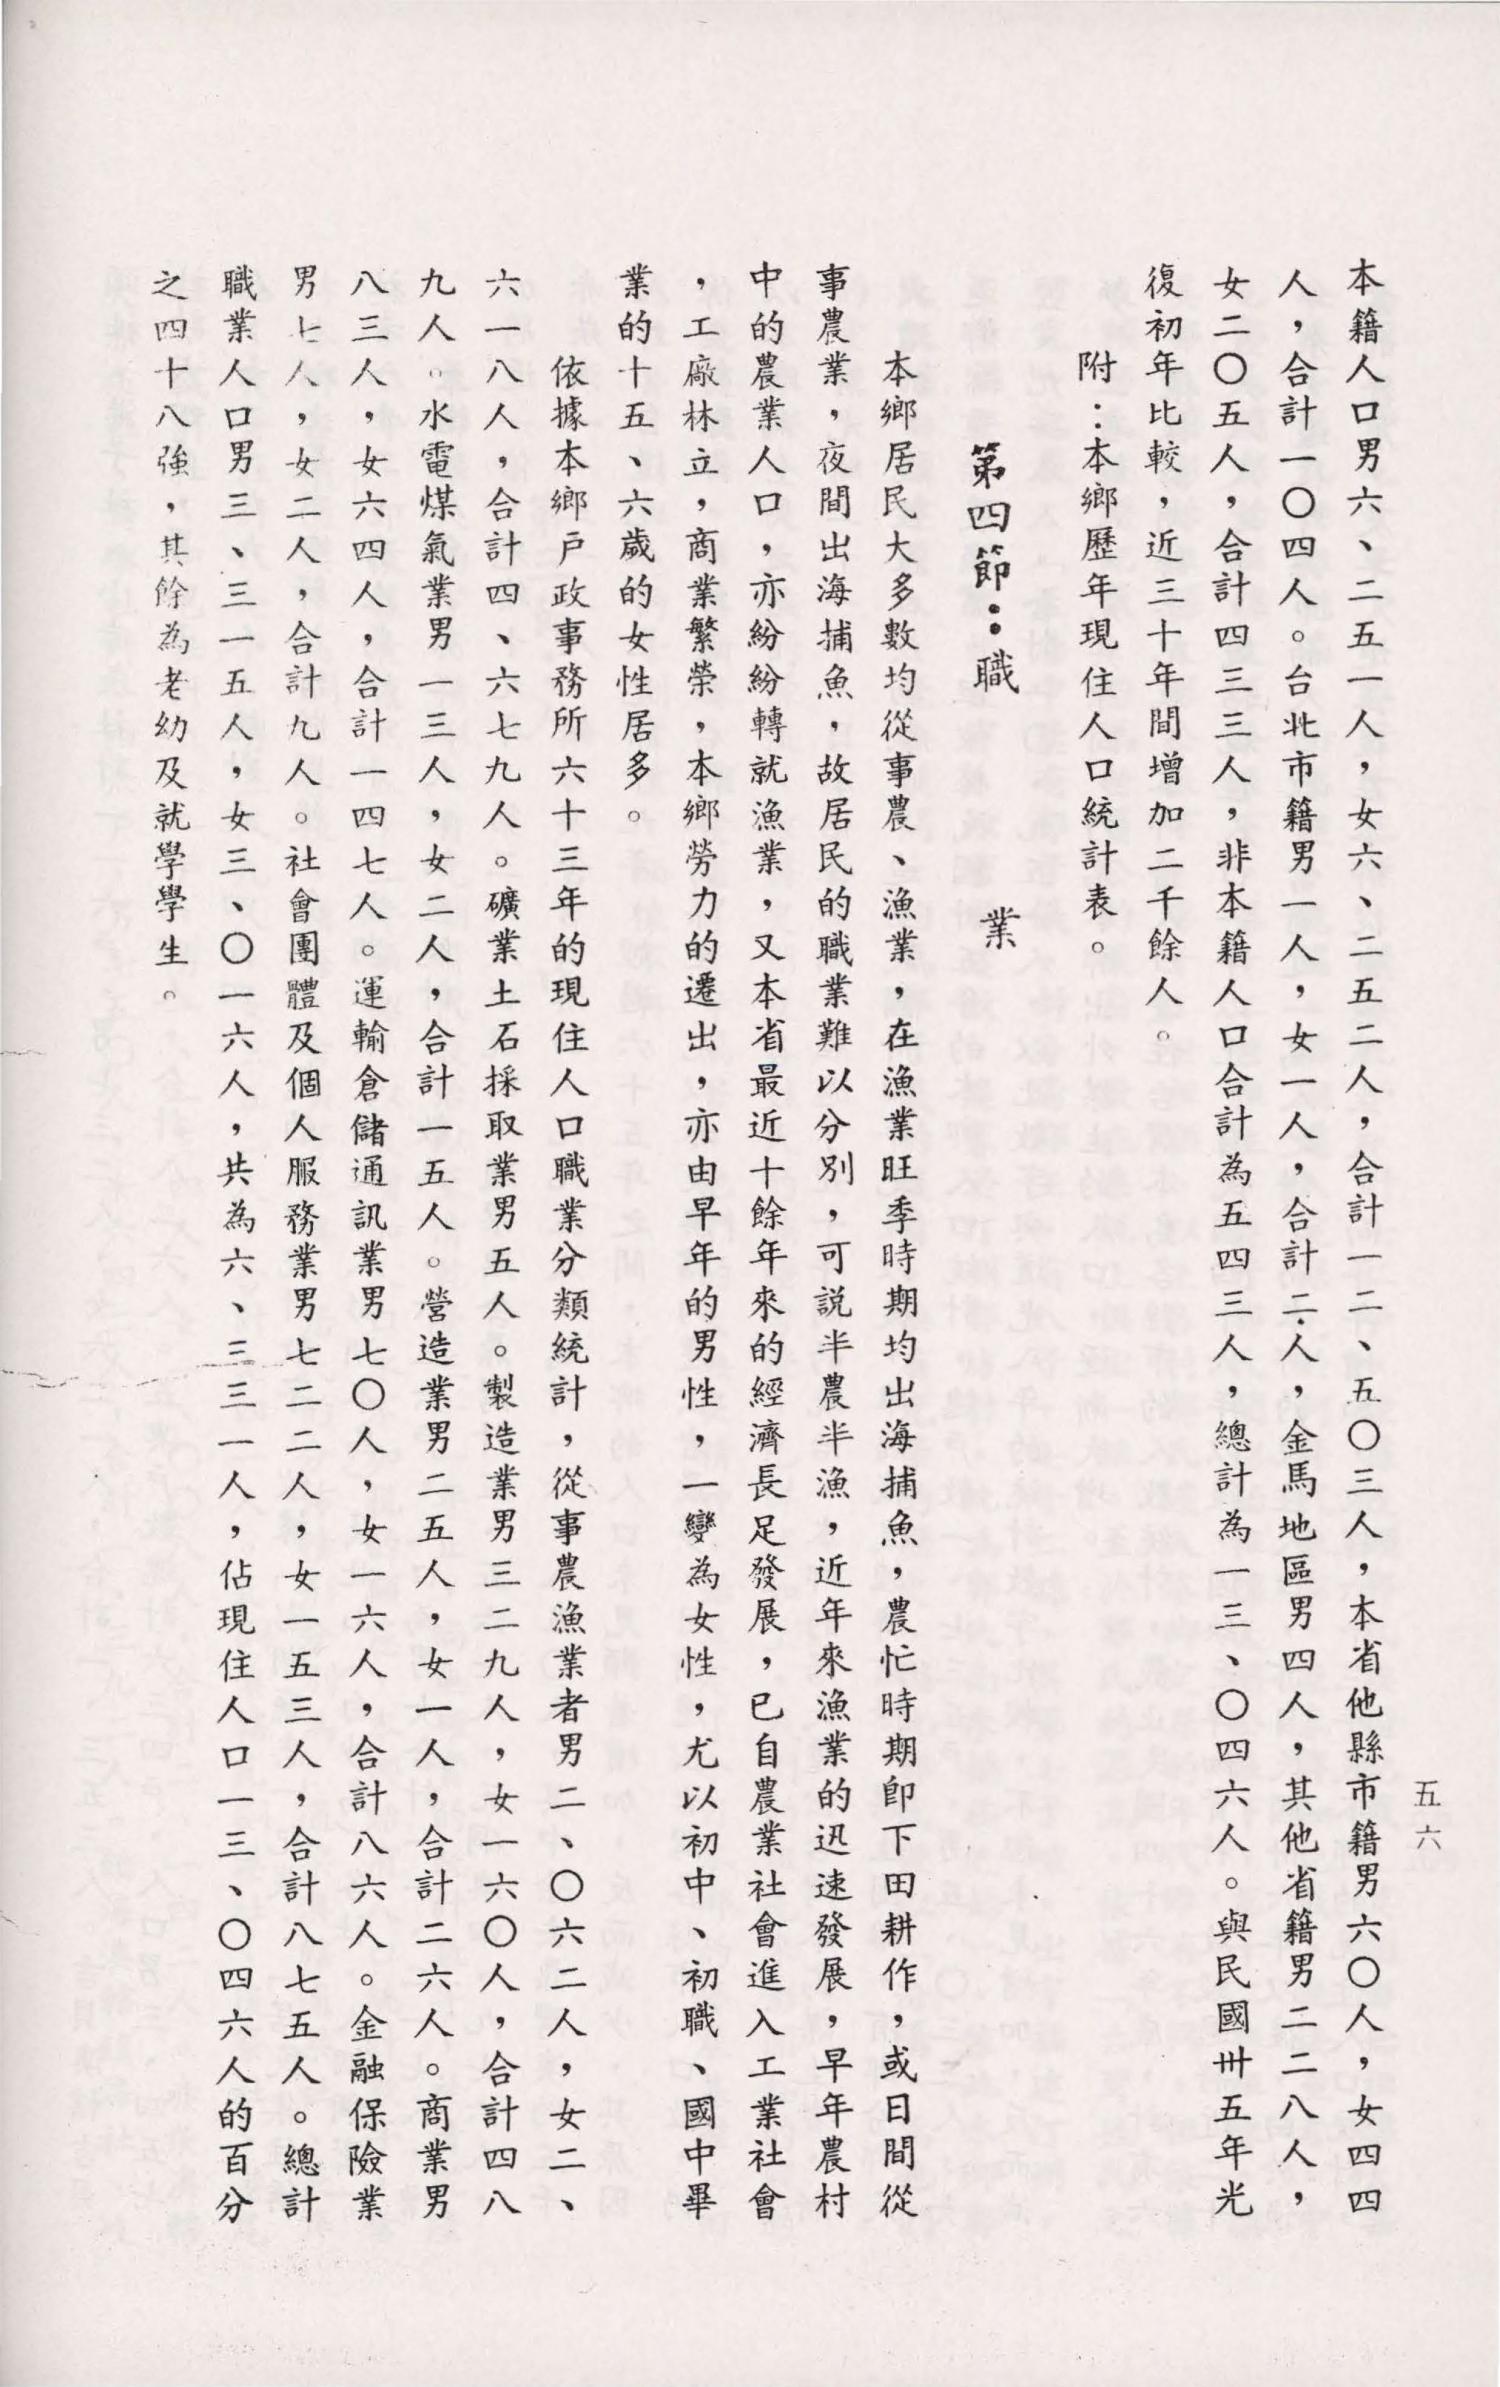 五六
本籍人口男六、二五一人，女六、二五二人，合計一二、五〇三人，本省他縣市籍男六〇人，女四四
人，合計一〇四人。台北市籍男一人，女一人，合計二人，金馬地區男四人，其他省籍男二二八人，
女二〇五人，合計四三三人，非本籍人口合計為五四三人，總計為一三、〇四六人。與民國卅五年光
復初年比較，近三十年間增加二千餘人。
附：本鄉歷年現住人口統計表。
第四節：職　業
本鄉居民大多數均從事農、漁業，在漁業旺季時期均出海捕魚，農忙時期即下田耕作，或日間從
事農業，夜間出海捕魚，故居民的職業難以分別，可說半農半漁，近年來漁業的迅速發展，早年農村
中的農業人口，亦紛紛轉就漁業，又本省最近十餘年來的經濟長足發展，已自農業社會進入工業社會
，工廠林立，商業繁榮，本鄉勞力的遷出，亦由早年的男性，一變為女性，尤以初中、初職、國中畢
業的十五、六歲的女性居多。
依據本鄉戶政事務所六十三年的現住人口職業分類統計，從事農漁業者男二、〇六二人，女二、
六一八人，合計四、六七九人。礦業土石採取業男五人。製造業男三二九人，女一六〇人，合計四八
九人。水電煤氣業男一三人，女二人，合計一五人。營造業男二五人，女一人，合計二六人。商業男
八三人，女六四人，合計一四七人。運輸倉儲通訊業男七〇人，女一六人，合計八六人。金融保險業
男七人，女二人，合計九人。社會團體及個人服務業男七二二人，女一五三人，合計八七五人。總計
職業人口男三、三一五人，女三、〇一六人，共為六、三三一人，佔現住人口一三、〇四六人的百分
之四十八強，其餘為老幼及就學學生。